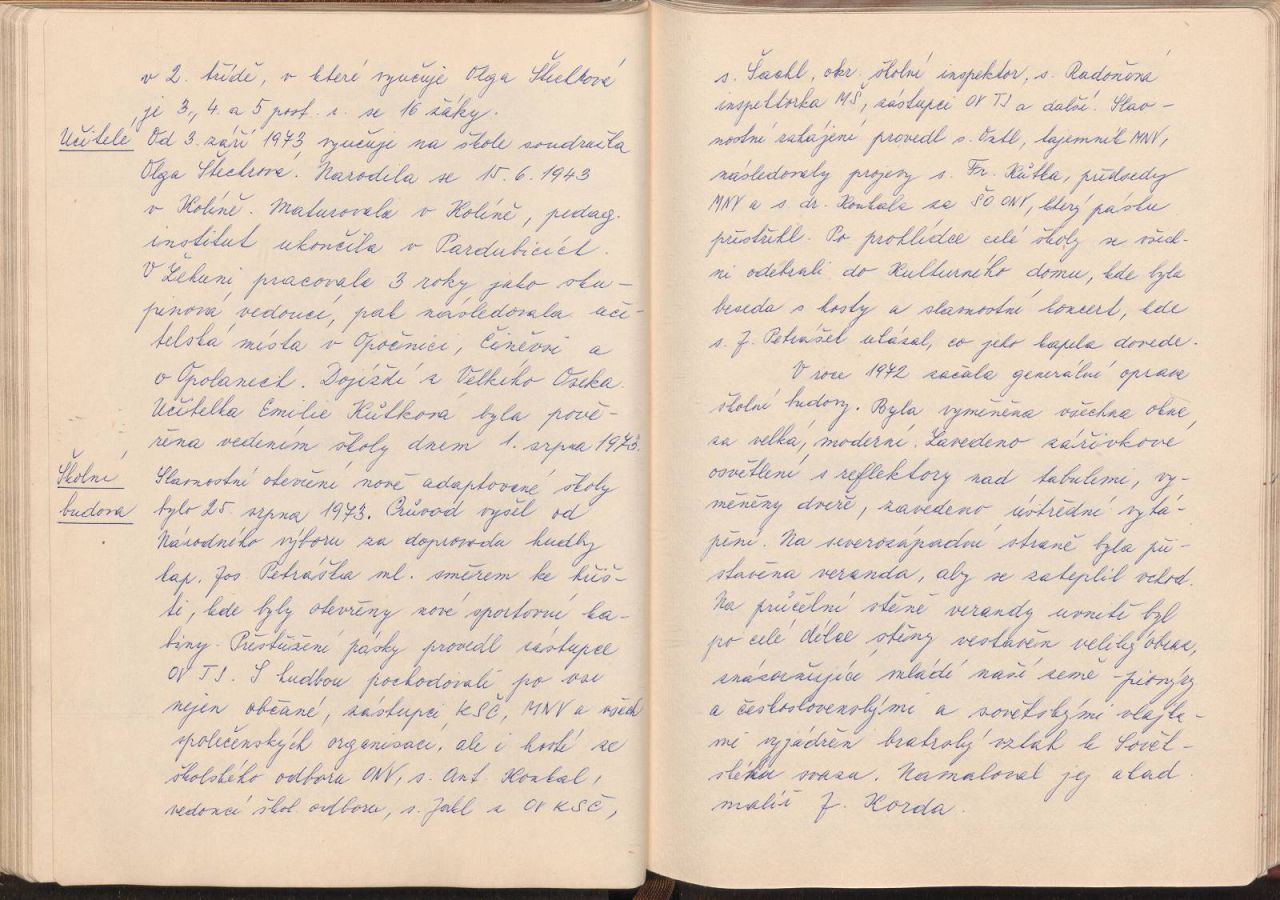 v 2. třídě, v které vyučuje Olga Štechrová
je 3., 4. a 5 post. r. se 16 žáky.
Učitelé Od 3. září 1973 vyučuje na škole soudružka
Olga Štechrová. Narodila se 15. 6. 1943
v Kolíně. Maturovala v Kolíně, pedag.
institut ukončila v Pardubicích.
V Žehuni pracovala 3 roky jako sku-
pinová vedoucí, pak následovala uči-
telská místa v Opočnici, Činěvsi a
v Opolanech. Dojíždí z Velkého Oseka.
Učitelka Emilie Kůtková byla pově-
řena vedením školy dnem 1. srpna 1973.
Školní Slavnostní otevření nově adaptované školy
budova bylo 25. srpna 1973. Průvod vyšel od
Národního výboru za doprovodu hudby
kap. Jos. Petráška ml. směrem ke hřiš-
ti, kde byly otevřeny nové sportovní ka-
biny. Přestřižení pásky provedl zástupce
OV TJ. S hudbou pochodovali po vsi
nejen občané, zástupci KSČ, MNV a všech
společenských organisací, ale i hosté ze
školského odboru ONV, s. Ant. Koukal,
vedoucí škol. odboru, s. z OV KSČ,
s. Šachl, okr. školní inspektor, s. Radoňová
inspektorka MŠ, zástupci OV TJ a další. Slav-
nostní zahájení provedl s. tajemník MNV,
následovaly projevy s. Fr. Kůtka, předsedy
MNV a s. dr. Koukala za ŠO ONV, který pásku
přestřihl. Po prohlídce celé školy se všich-
ni odebrali do Kulturního domu, kde byla
beseda s hosty a slavnostní koncert, kde
s. J. Petrášek ukázal, co jeho kapela dovede.
V roce 1972 začala generální oprava
školní budovy. Byla vyměněna všechna okna
za velká, moderní. Zavedeno zářivkové
osvětlení s reflektory nad tabulemi, vy-
měněny dveře, zavedeno ústřední vytá-
pění. Na severozápadní straně byla při-
stavěna veranda, aby se zateplil vchod.
Na průčelní stěně verandy uvnitř byl
po celé délce stěny vestavěn veliký obraz,
znázorňující mládí naší země – pionýry
a československými a sovětskými vlajka-
mi vyjádřen bratrský vztah k Sovět-
skému svazu. Namaloval jej akad.
malíř J. Korda.